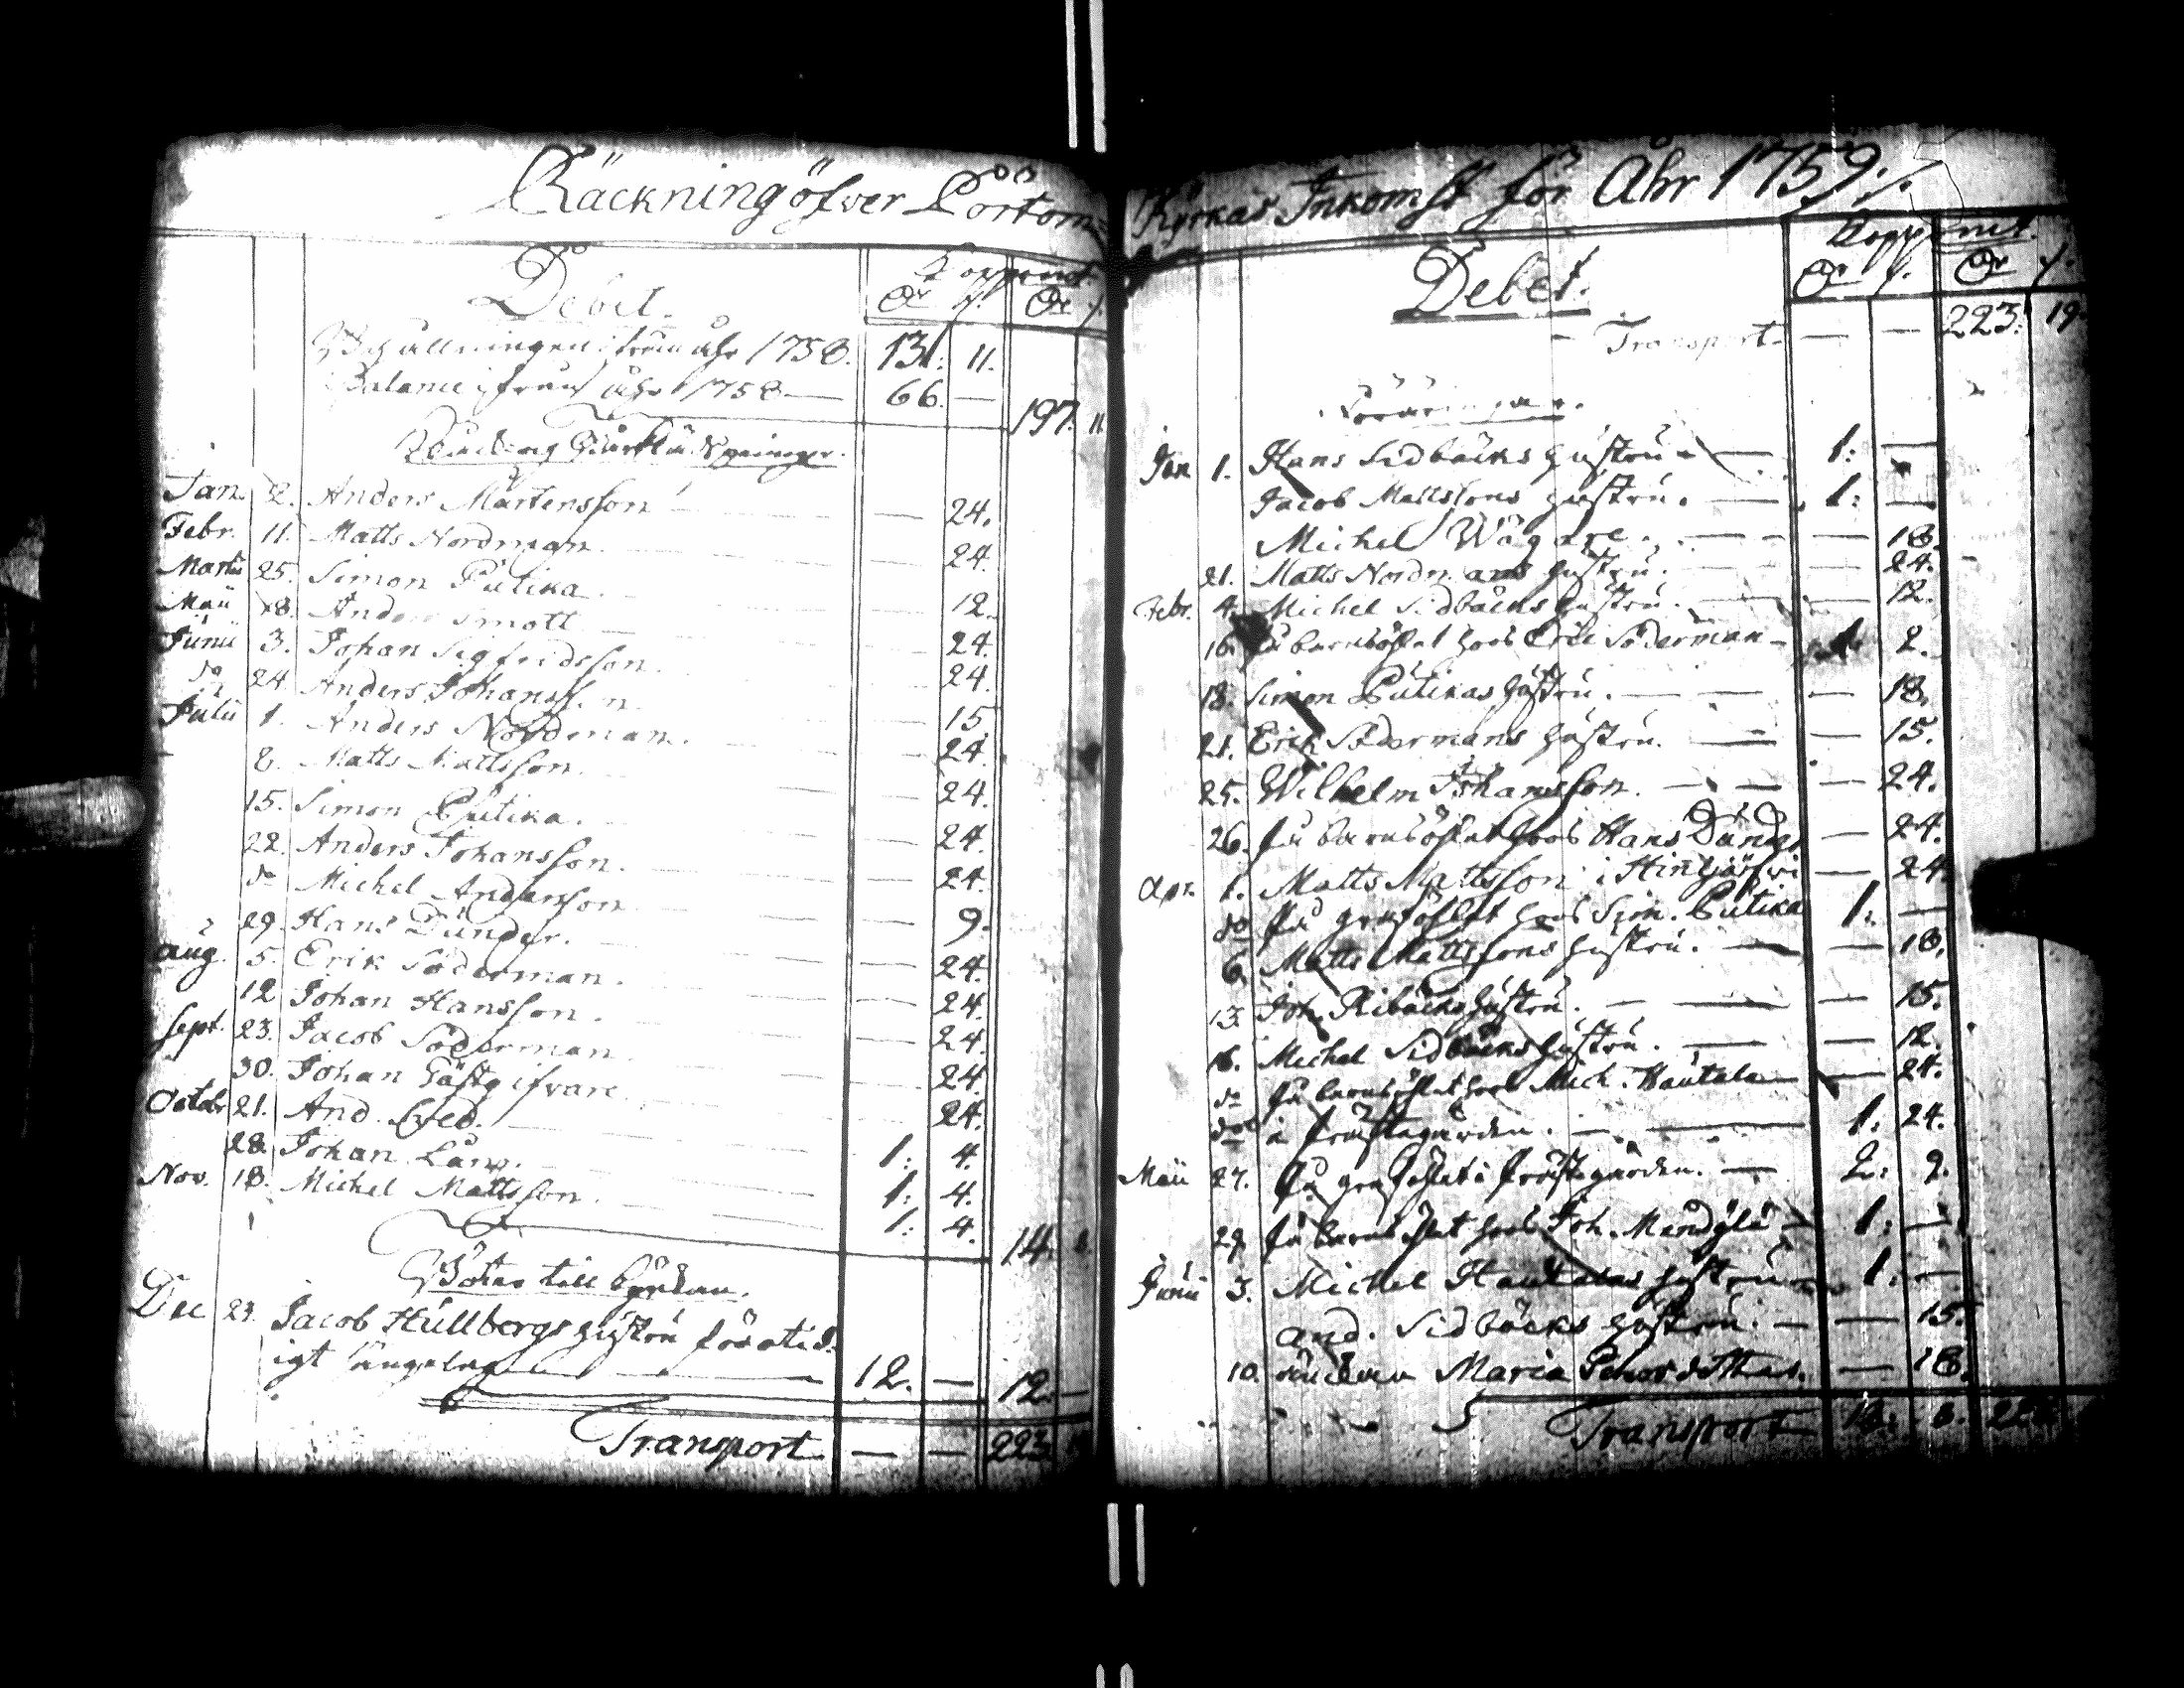 Räckning öfver Pörtom=
Debet.
Koppmt.
Dr /. Dr /.
Behållningen ifrån åhr 1758. 131. 11.
Balance ifrån åhr 1758 — 66. —
197. 11
Jan. 2. Anders Mårtensson — 24.
Febr. 11. Matts Nordman. — 24.
Martii 25. Simon Pütika. — 12.
Maii 18. Anders Smott — 24.
Junii 3. Johan Sigfridsson. — 24.
do 24. Anders Johansson. — 15.
Julii 1. Anders Nordman. — 24.
8. Matts Mattsson. — 24.
15. Simon Pütika. — 24.
22. Anders Johansson. — 24.
do Michel Andersson — 9.
29. Hans Dunder. — 24.
Aug. 5. Erik Söderman. — 24.
12. Johan Hansson. — 24.
Sept. 23. Jacob Söderman — 24.
30. Johan Gästgifvare — 24.
Octobr 21. And. 1: 4.
28. Johan 1: 4.
Nov. 18. Michel Mattsson. 1: 4.
14.
Böter till Kyrkan.
Dec 23. Jacob Hüllbergs hustru för otid=
igt sängelag — 12. — 12. —
Transport — — 223.
Kyrkas Inkomst för Åhr 1759./.
Debet.
Koppmt.
Dr /. Dr /.
Transport — — 223: 19.
Jan 1. Hans Sidbäcks hustru — 1: —
Jacob Mattssons hustru. — 1: —
Michel Wägare. — — 18.
21. Matts Nordmans hustru. — 24.
Febr. 4. Michel Sidbäcks hustru. — 12.
16. På barnsöhlet hos Erik Söderman — 1 2.
18. Simon Pütikas hustru. — — 18.
21. Erik Södermans hustru. — — 15.
25. Wilhelm Johansson. — — 24.
26. På barnsöhlet hos Hans Dunder — 24.
Apr. 1. Matts Mattsson i Hinjärfvi — 24.
do På graföhlet hos Sim. Pütika 1: —
6. Matts Mattssons hustru. — — 18.
13. Joh. Ribäcks hustru. — — 15.
16. Michel Sidbäcks hustru. — — 12.
do På barnsöhlet hos Mich. Hautala — 24.
do i Prästegården. — 1: 24.
Maii 27. På grafölet i Prästegården. — 2: 9.
29. På barnsöhlet hos Joh. — 1: —
Junii 3. Michel Hautalas hustru — 1: —
And. Sidbäcks hustru. — — 15.
10. Maria — 18.
Transport